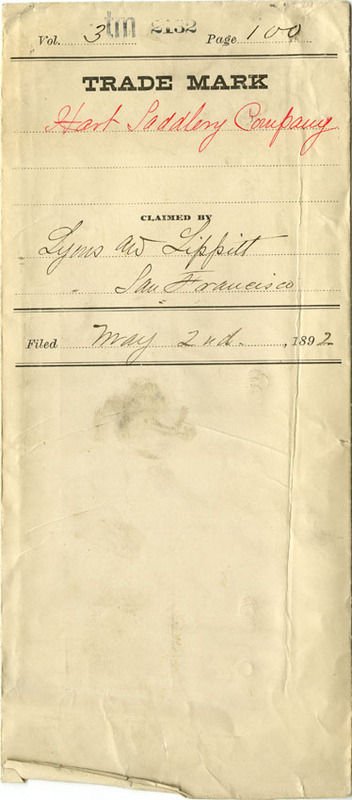 Vol. 3 tm 2132 Page 100
TRADE MARK
Hart Saddlery Company
CLAIMED BY
Lyons and Lippitt
San Francisco
Filed May 2nd. , 1892